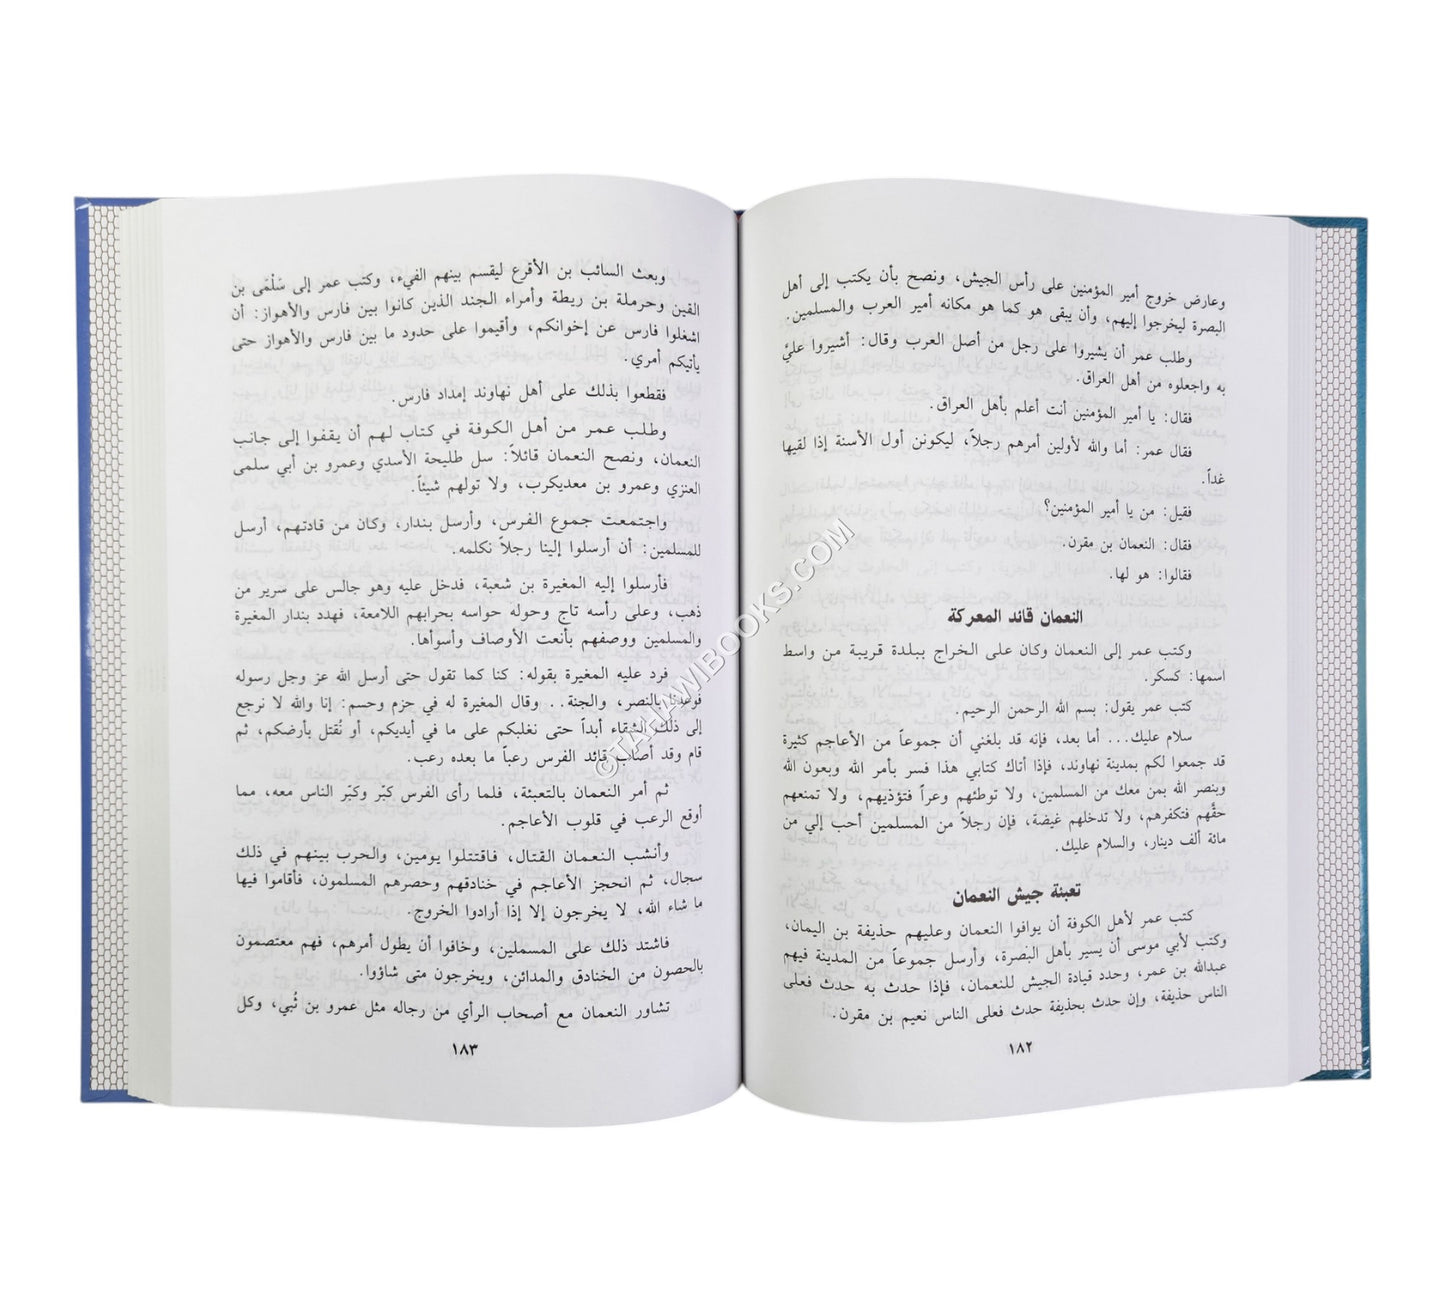 وعارض خروج أمير المؤمنين على رأس الجيش، ونصح بأن يكتب إلى أهل
البصرة ليخرجوا إليهم، وأن يبقى هو كما هو مكانه أمير العرب والمسلمين.
وطلب عمر أن يشيروا على رجل من أصل العرب وقال: أشيروا عليَّ
به واجعلوه من أهل العراق.
فقال: يا أمير المؤمنين أنت أعلم بأهل العراق.
فقال عمر: أما والله لأولين أمرهم رجلاً، ليكونن أول الأسنة إذا لقيها
غداً.
فقيل: من يا أمير المؤمنين؟
فقال: النعمان بن مقرن.
فقالوا: هو لها.
النعمان قائد المعركة
وكتب عمر إلى النعمان وكان على الخراج ببلدة قريبة من واسط
اسمها: كسكر.
كتب عمر يقول: بسم الله الرحمن الرحيم.
سلام عليك... أما بعد، فإنه قد بلغني أن جموعاً من الأعاجم كثيرة
قد جمعوا لكم بمدينة نهاوند، فإذا أتاك كتابي هذا فسر بأمر الله وبعون الله
وبنصر الله بمن معك من المسلمين، ولا توطئهم وعراً فتؤذيهم، ولا تمنعهم
حقَّهم فتكفرهم، ولا تدخلهم غيضة، فإن رجلاً من المسلمين أحب إلي من
مائة ألف دينار، والسلام عليك.
تعبئة جيش النعمان
كتب عمر لأهل الكوفة أن يوافوا النعمان وعليهم حذيفة بن اليمان،
وكتب لأبي موسى أن يسير بأهل البصرة، وأرسل جموعاً من المدينة فيهم
عبدالله بن عمر، وحدد قيادة الجيش للنعمان، فإذا حدث به حدث فعلى
الناس حذيفة، وإن حدث بحذيفة حدث فعلى الناس نعيم بن مقرن.
١٨٢
وبعث السائب بن الأقرع ليقسم بينهم الفيء، وكتب عمر إلى سَلْمَى بن
القين وحرملة بن ريطة وأمراء الجند الذين كانوا بين فارس والأهواز: أن
اشغلوا فارس عن إخوانكم، وأقيموا على حدود ما بين فارس والأهواز حتى
يأتيكم أمري.
فقطعوا بذلك على أهل نهاوند إمداد فارس.
وطلب عمر من أهل الكوفة في كتاب لهم أن يقفوا إلى جانب
النعمان، ونصح النعمان قائلاً: سل طليحة الأسدي وعمرو بن أبي سلمى
العنزي وعمرو بن معديكرب، ولا تولهم شيئاً.
واجتمعت جموع الفرس، وأرسل بندار، وكان من قادتهم، أرسل
للمسلمين: أن أرسلوا إلينا رجلاً نكلمه.
فأرسلوا إليه المغيرة بن شعبة، فدخل عليه وهو جالس على سرير من
ذهب، وعلى رأسه تاج وحوله حواسه بحرابهم اللامعة، فهدد بندار المغيرة
والمسلمين ووصفهم بأنعت الأوصاف وأسوأها.
فرد عليه المغيرة بقوله: كنا كما تقول حتى أرسل الله عز وجل رسوله
فوعدنا بالنصر، والجنة.. وقال المغيرة له في حزم وحسم: إنا والله لا نرجع
إلى ذلك الشقاء أبداً حتى نغلبكم على ما في أيديكم، أو نُقتل بأرضكم، ثم
قام وقد أصاب قائد الفرس رعباً ما بعده رعب.
ثم أمر النعمان بالتعبئة، فلما رأى الفرس كبّر وكبّر الناس معه، مما
أوقع الرعب في قلوب الأعاجم.
وأنشب النعمان القتال، فاقتتلوا يومين، والحرب بينهم في ذلك
سجال، ثم انحجز الأعاجم في خنادقهم وحصرهم المسلمون، فأقاموا فيها
ما شاء الله، لا يخرجون إلا إذا أرادوا الخروج.
فاشتد ذلك على المسملين، وخافوا أن يطول أمرهم، فهم معتصمون
بالحصون من الخنادق والمدائن، ويخرجون متى شاؤوا.
تشاور النعمان مع أصحاب الرأي من رجاله مثل عمرو بن ثُبي، وكل
١٨٣
© TAHAWIBOOKS.COM